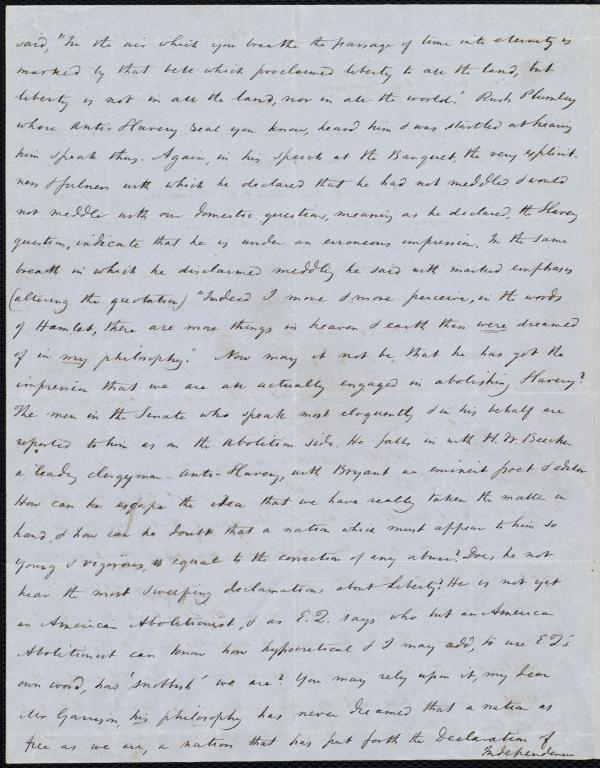 said, "In the air which you breathe the passage of time into eternity is
marked by that bell which proclaimed liberty to all the land, but
liberty is not in all the land, nor in all the world." Rush Plumley
whose Anti-Slavery zeal you know, heard him & was startled at hearing
him speak thus. Again, in his speech at the Banquet, the very explicit-
ness & fulness with which he declared that he had not meddled & would
not meddle with our domestic questions, meaning as he declared, the Slavery
question, indicate that he is under an erroneous impression. In the same
breath in which he disclaimed meddling he said with marked emphasis
(altering the quotation) "Indeed I more & more perceive, in the words
of Hamlet, there are more things in heaven & earth than were dreamed
of in my philosophy." Now may it not be, that he has got the
impression that we are all actually engaged in abolishing Slavery?
The men in the Senate who speak most eloquently & in his behalf are
reported to him as on the Abolition side. He falls in with H. W. Beecher
a leading clergyman - Anti-Slavery, with Bryant an eminent poet & editor
How can he escape the idea that we have really taken the matter in
hand, & how can he doubt that a nation which must appear to him so
young & vigorous, is equal to the correction of any abuse? Does he not
hear the most sweeping declamations about Liberty? He is not yet
an American Abolitionist, & as E. Q. says who but an American
Abolitionist can know how hypocritical & I may add, to use E Q's
own word, how 'snobbish' we are? You may rely upon it, my dear
Mr Garrison, his philosophy has never dreamed that a nation as
free as we are, a nation that has put forth the Declaration of
Independence